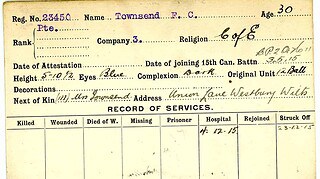 Reg. No. 23450 Name Townsend F. C. Age 30
Rank Pte. Company 3. Religion C of E
Date of Attestation Date of joining 15th Can. Battn. 3.5.15
Height 5-10½ Eyes Blue Complexion Dark Original Unit 12 Batt
Decorations
Next of Kin (M) Mrs Townsend Address Union Lane Westbury Wilts
RECORD OF SERVICES.
Killed Wounded Died of W. Missing Prisoner Hospital Rejoined Struck Off
4.12.15 23-12-15